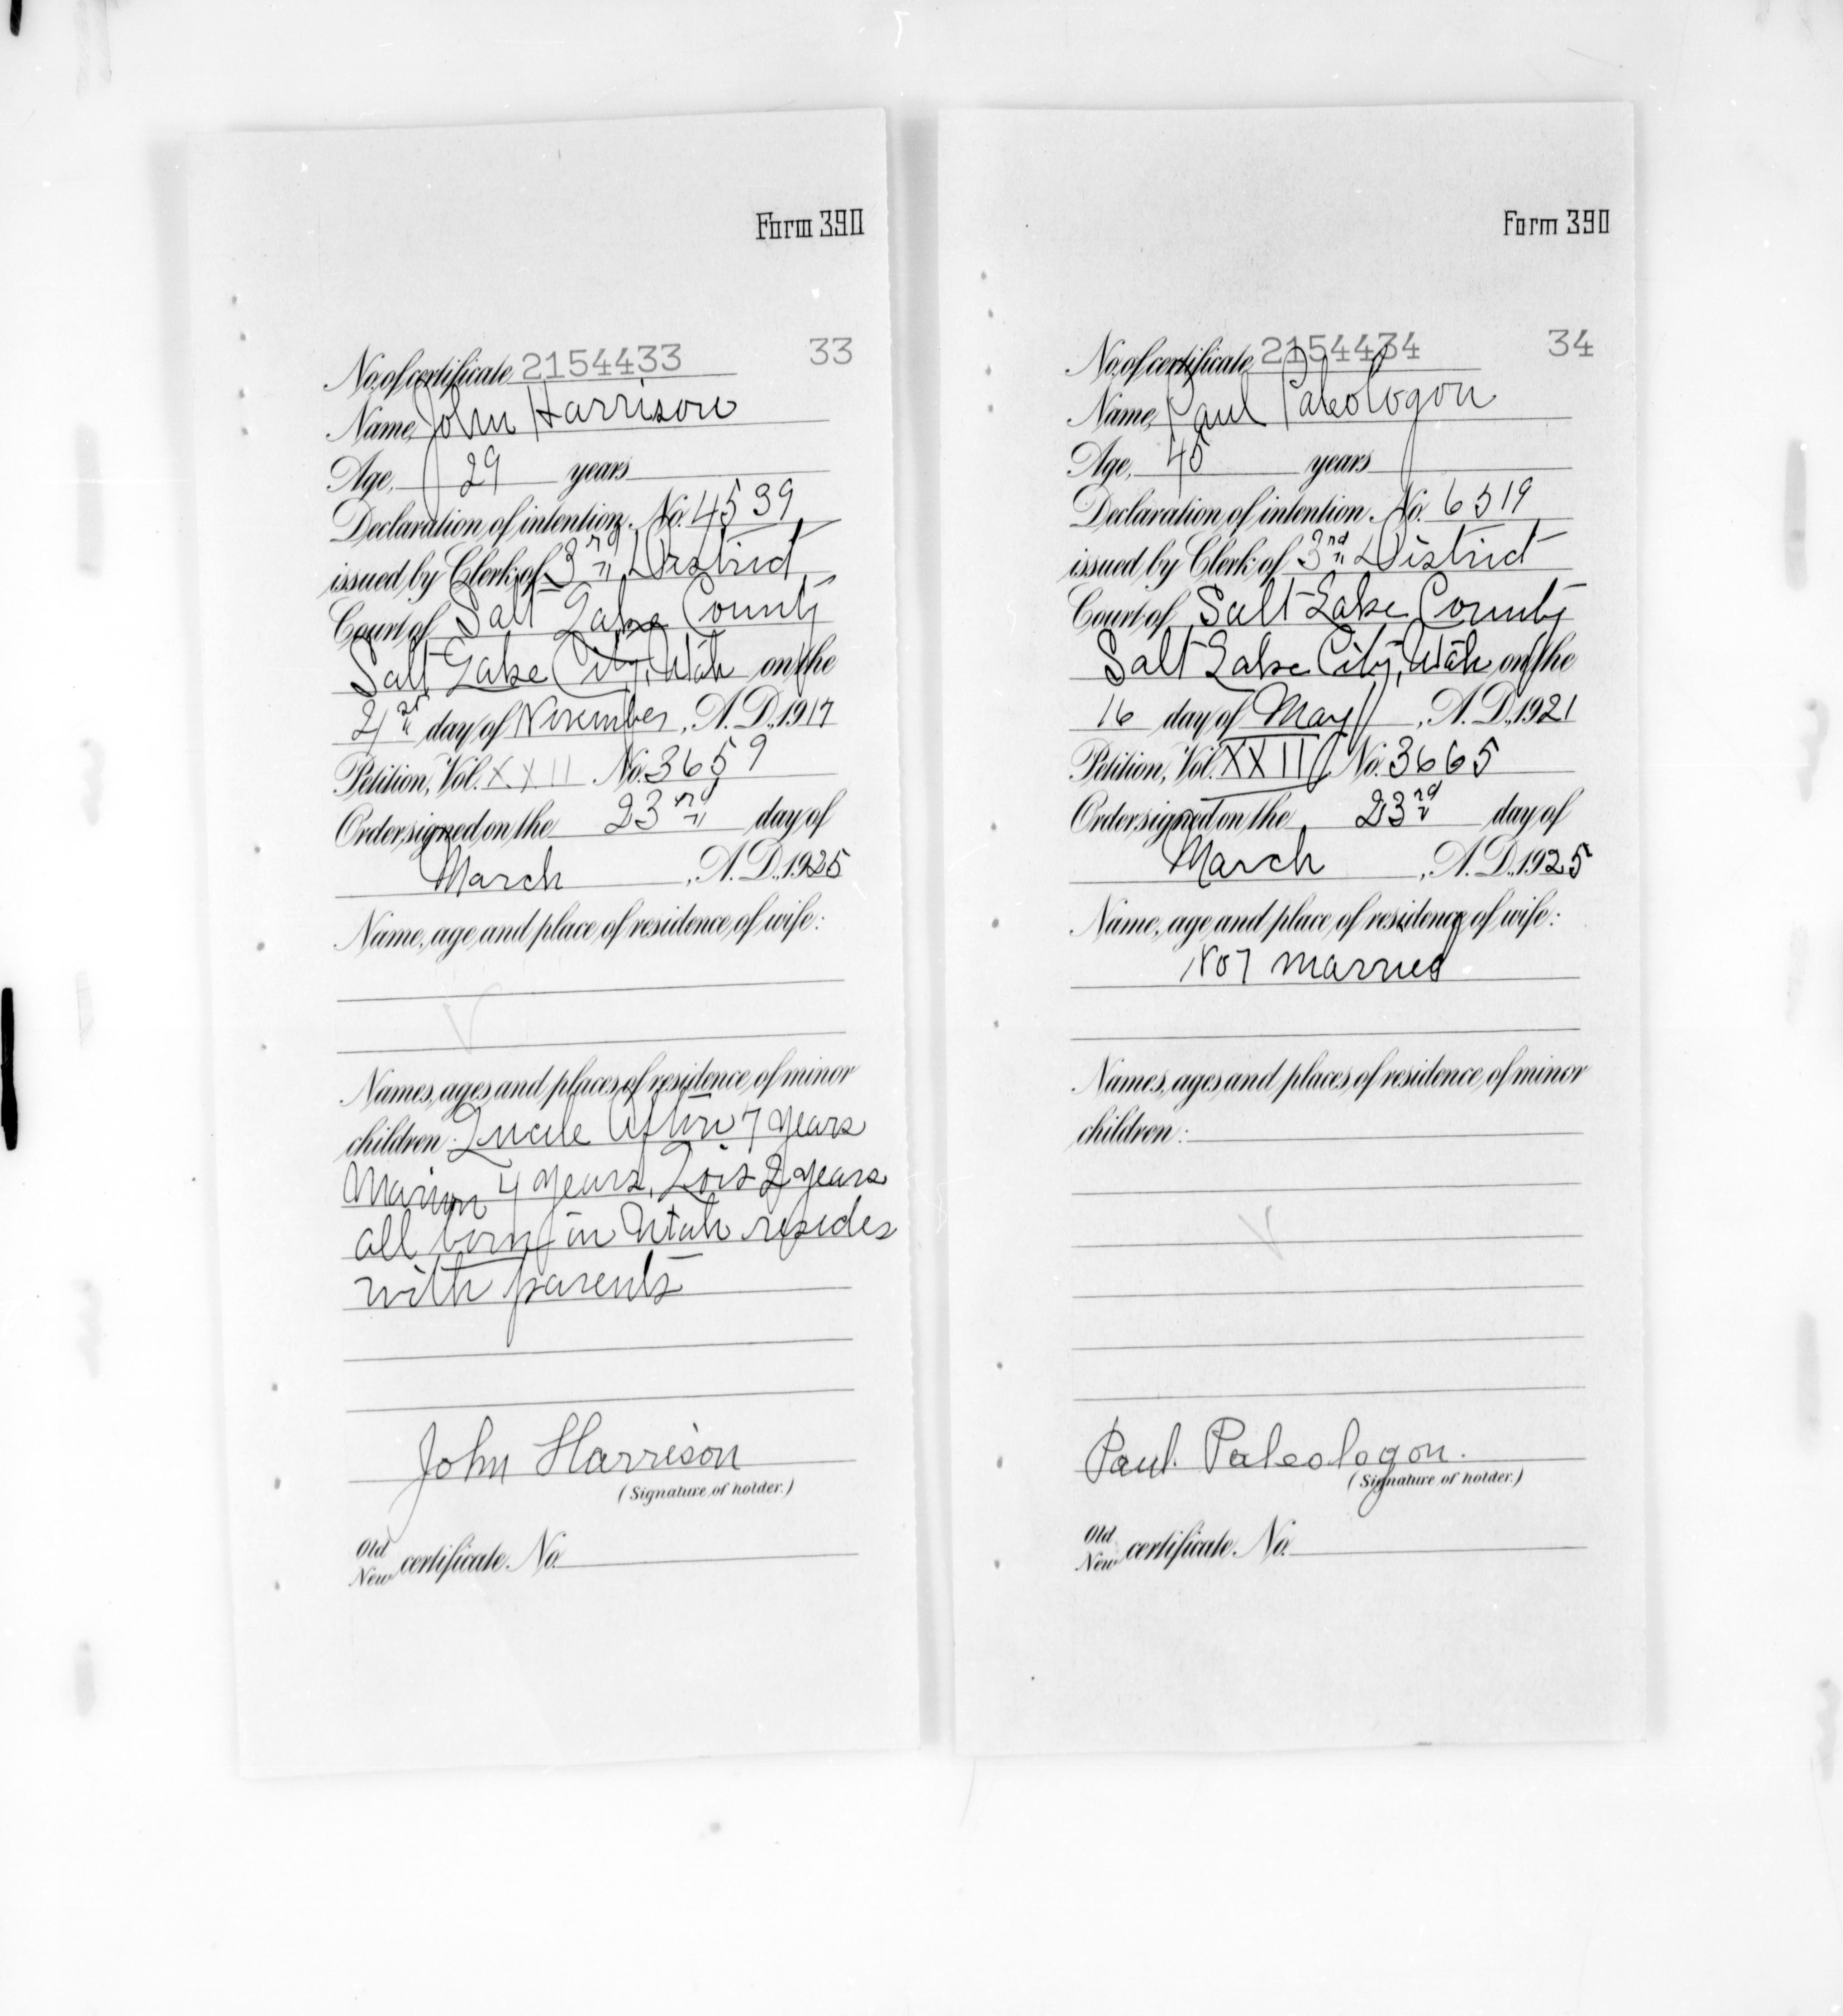 Form 390
No. of certificate 2154433 33
Name, John Harrison
Age, 29 years
Declaration of intention. No. 4539
issued by Clerk of 3rd District
Court of Salt Lake County
Salt Lake City, Utah on the
21st day of November, A. D., 1917
Petition, Vol. XXII No. 3659
Order signed on the 23rd day of
March, A. D., 1925
Name, age and place of residence of wife:
Names, ages and places of residence of minor
children: Lucile Afton 7 years
Marion 4 years, Lois 2 years
all born in Utah resides
with parents
John Harrison
(Signature of holder.)
Old
New certificate No.
Form 390
No. of certificate 2154434 34
Name, Paul Paleologon
Age, 45 years
Declaration of intention No. 6519
issued by Clerk of 3rd District
Court of Salt Lake County
Salt Lake City, Utah on the
16 day of May, A. D., 1921
Petition, Vol. XXII No. 3665
Order signed on the 23rd day of
March, A. D., 1925
Name, age and place of residence of wife:
Not married
Names, ages and places of residence of minor
children:
Paul Paleologon.
(Signature of holder.)
Old
New certificate No.